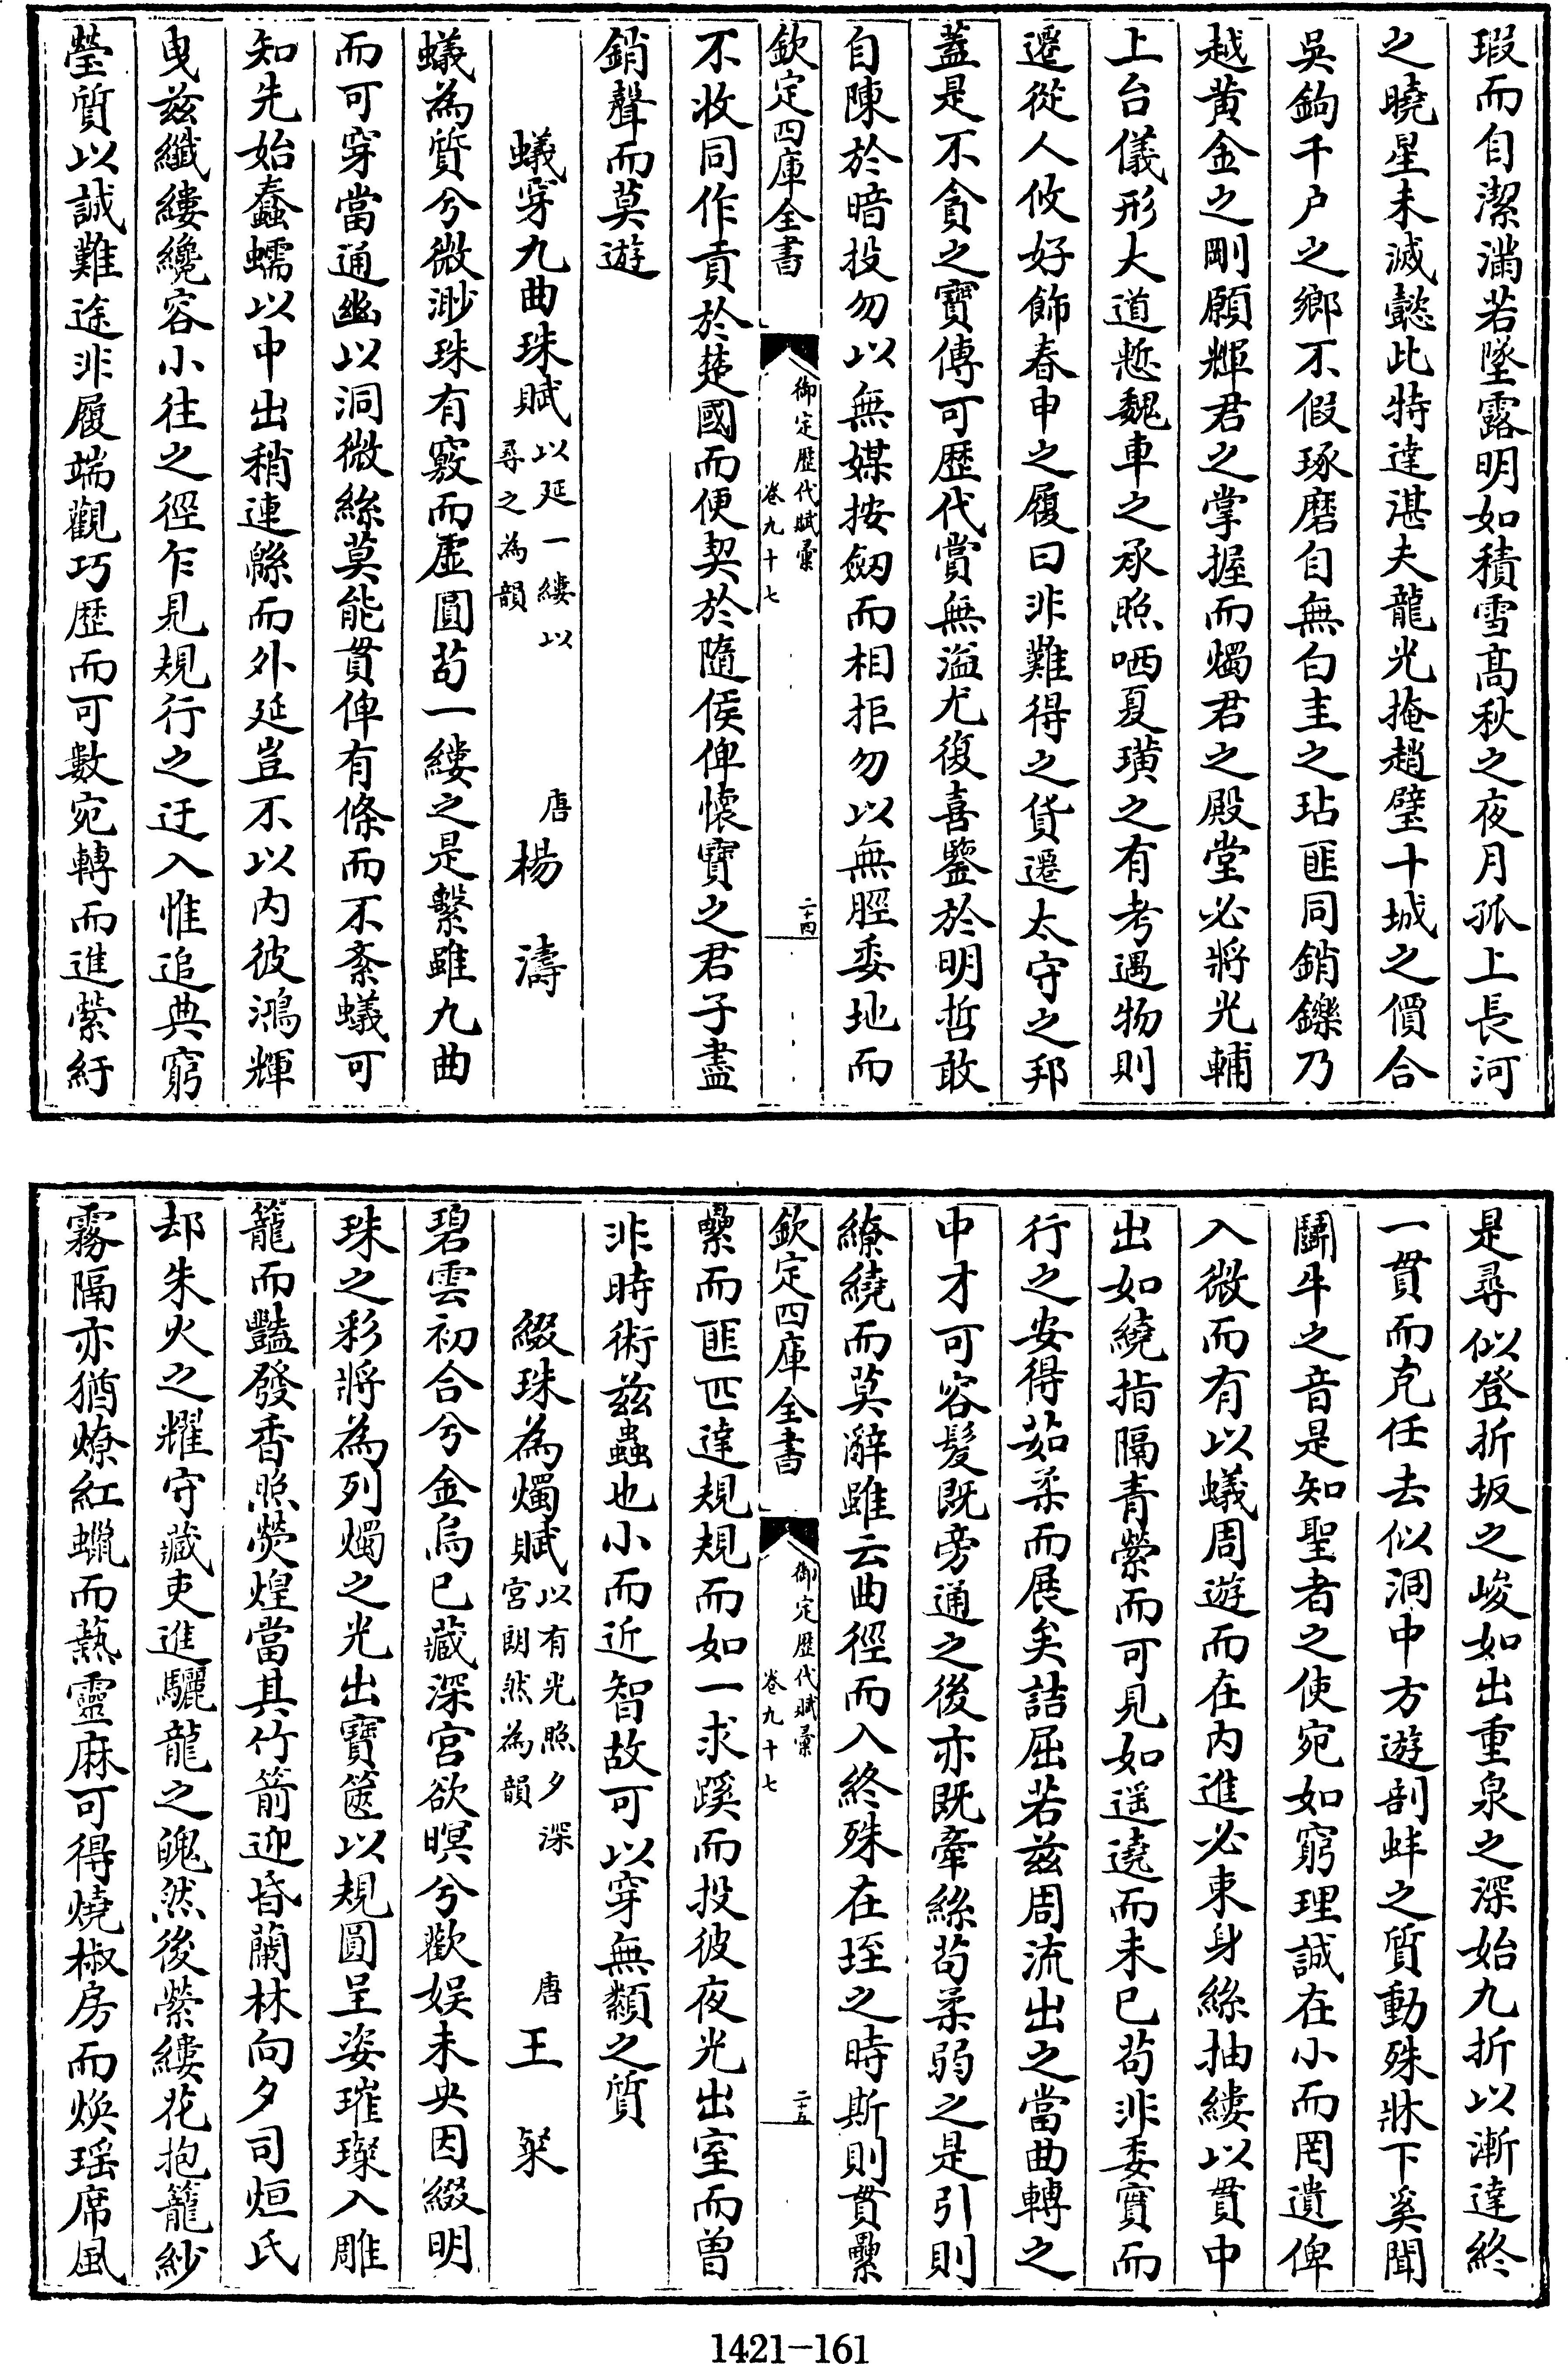 瑕而自潔滿若墜露明如積雪髙秋之夜月孤上長河
之曉星未滅懿此特達湛夫龍光掩趙璧十城之價合
吳鉤千户之鄉不假琢磨自無白圭之玷匪同銷鑠乃
越黄金之剛願輝君之掌握而燭君之殿堂必將光輔
上台儀形大道慙魏車之承照哂夏璜之有考遇物則
遷從人攸好飾春申之履曰非難得之貨遷太守之邦
蓋是不貪之寶傳可歴代賞無溢尤復喜鑒於明哲敢
自陳於暗投勿以無媒按劔而相拒勿以無脛委地而
欽定四庫全書
御定歴代賦彙
卷九十七
二十四
不收同作貢於楚國而便契於隨侯俾懷寶之君子盡
銷聲而莫遊
蟻穿九曲珠賦以延一縷以
尋之為韻
唐楊濤
蟻為質兮微渺珠有竅而虛圓苟一縷之是繫雖九曲
而可穿當通幽以洞微絲莫能貫俾有條而不紊蟻可
知先始蠢蠕以中出稍連緜而外延豈不以内彼鴻輝
曳兹纖縷纔容小往之徑乍見規行之迂入惟追典窮
瑩質以誠難途非履端觀巧歴而可數宛轉而進縈紆
是尋似登折坂之峻如出重泉之深始九折以漸達終
一貫而克任去似洞中方遊剖蚌之質動殊牀下奚聞
鬭牛之音是知聖者之使宛如窮理誠在小而罔遺俾
入微而有以蟻周遊而在内進必東身絲抽縷以貫中
出如繞指隔青縈而可見如遥遶而未已苟非委實而
行之安得茹柔而展矣詰屈若兹周流出之當曲轉之
中才可容髪既旁通之後亦既牽絲苟柔弱之是引則
繚繞而莫辭雖云曲徑而入終殊在垤之時斯則貫纍
欽定四庫全書
御定歴代賦彙
卷九十七
二十五
纍而匪匹達規規而如一求蹊而投彼夜光出室而曾
非時術兹蟲也小而近智故可以穿無纇之質
綴珠為燭賦以有光照夕深
宮朗然為韻
唐王棨
碧雲初合兮金烏已藏深宮欲暝兮歡娱未央因綴明
珠之彩將為列燭之光出寶篋以規圓呈姿璀璨入雕
籠而豔發香照熒煌當其竹箭迎昏蘭林向夕司烜氏
却朱火之耀守藏吏進驪龍之魄然後縈縷花抱籠紗
霧隔亦猶燎紅蠟而爇靈麻可得燒椒房而煥瑶席風
1421-161